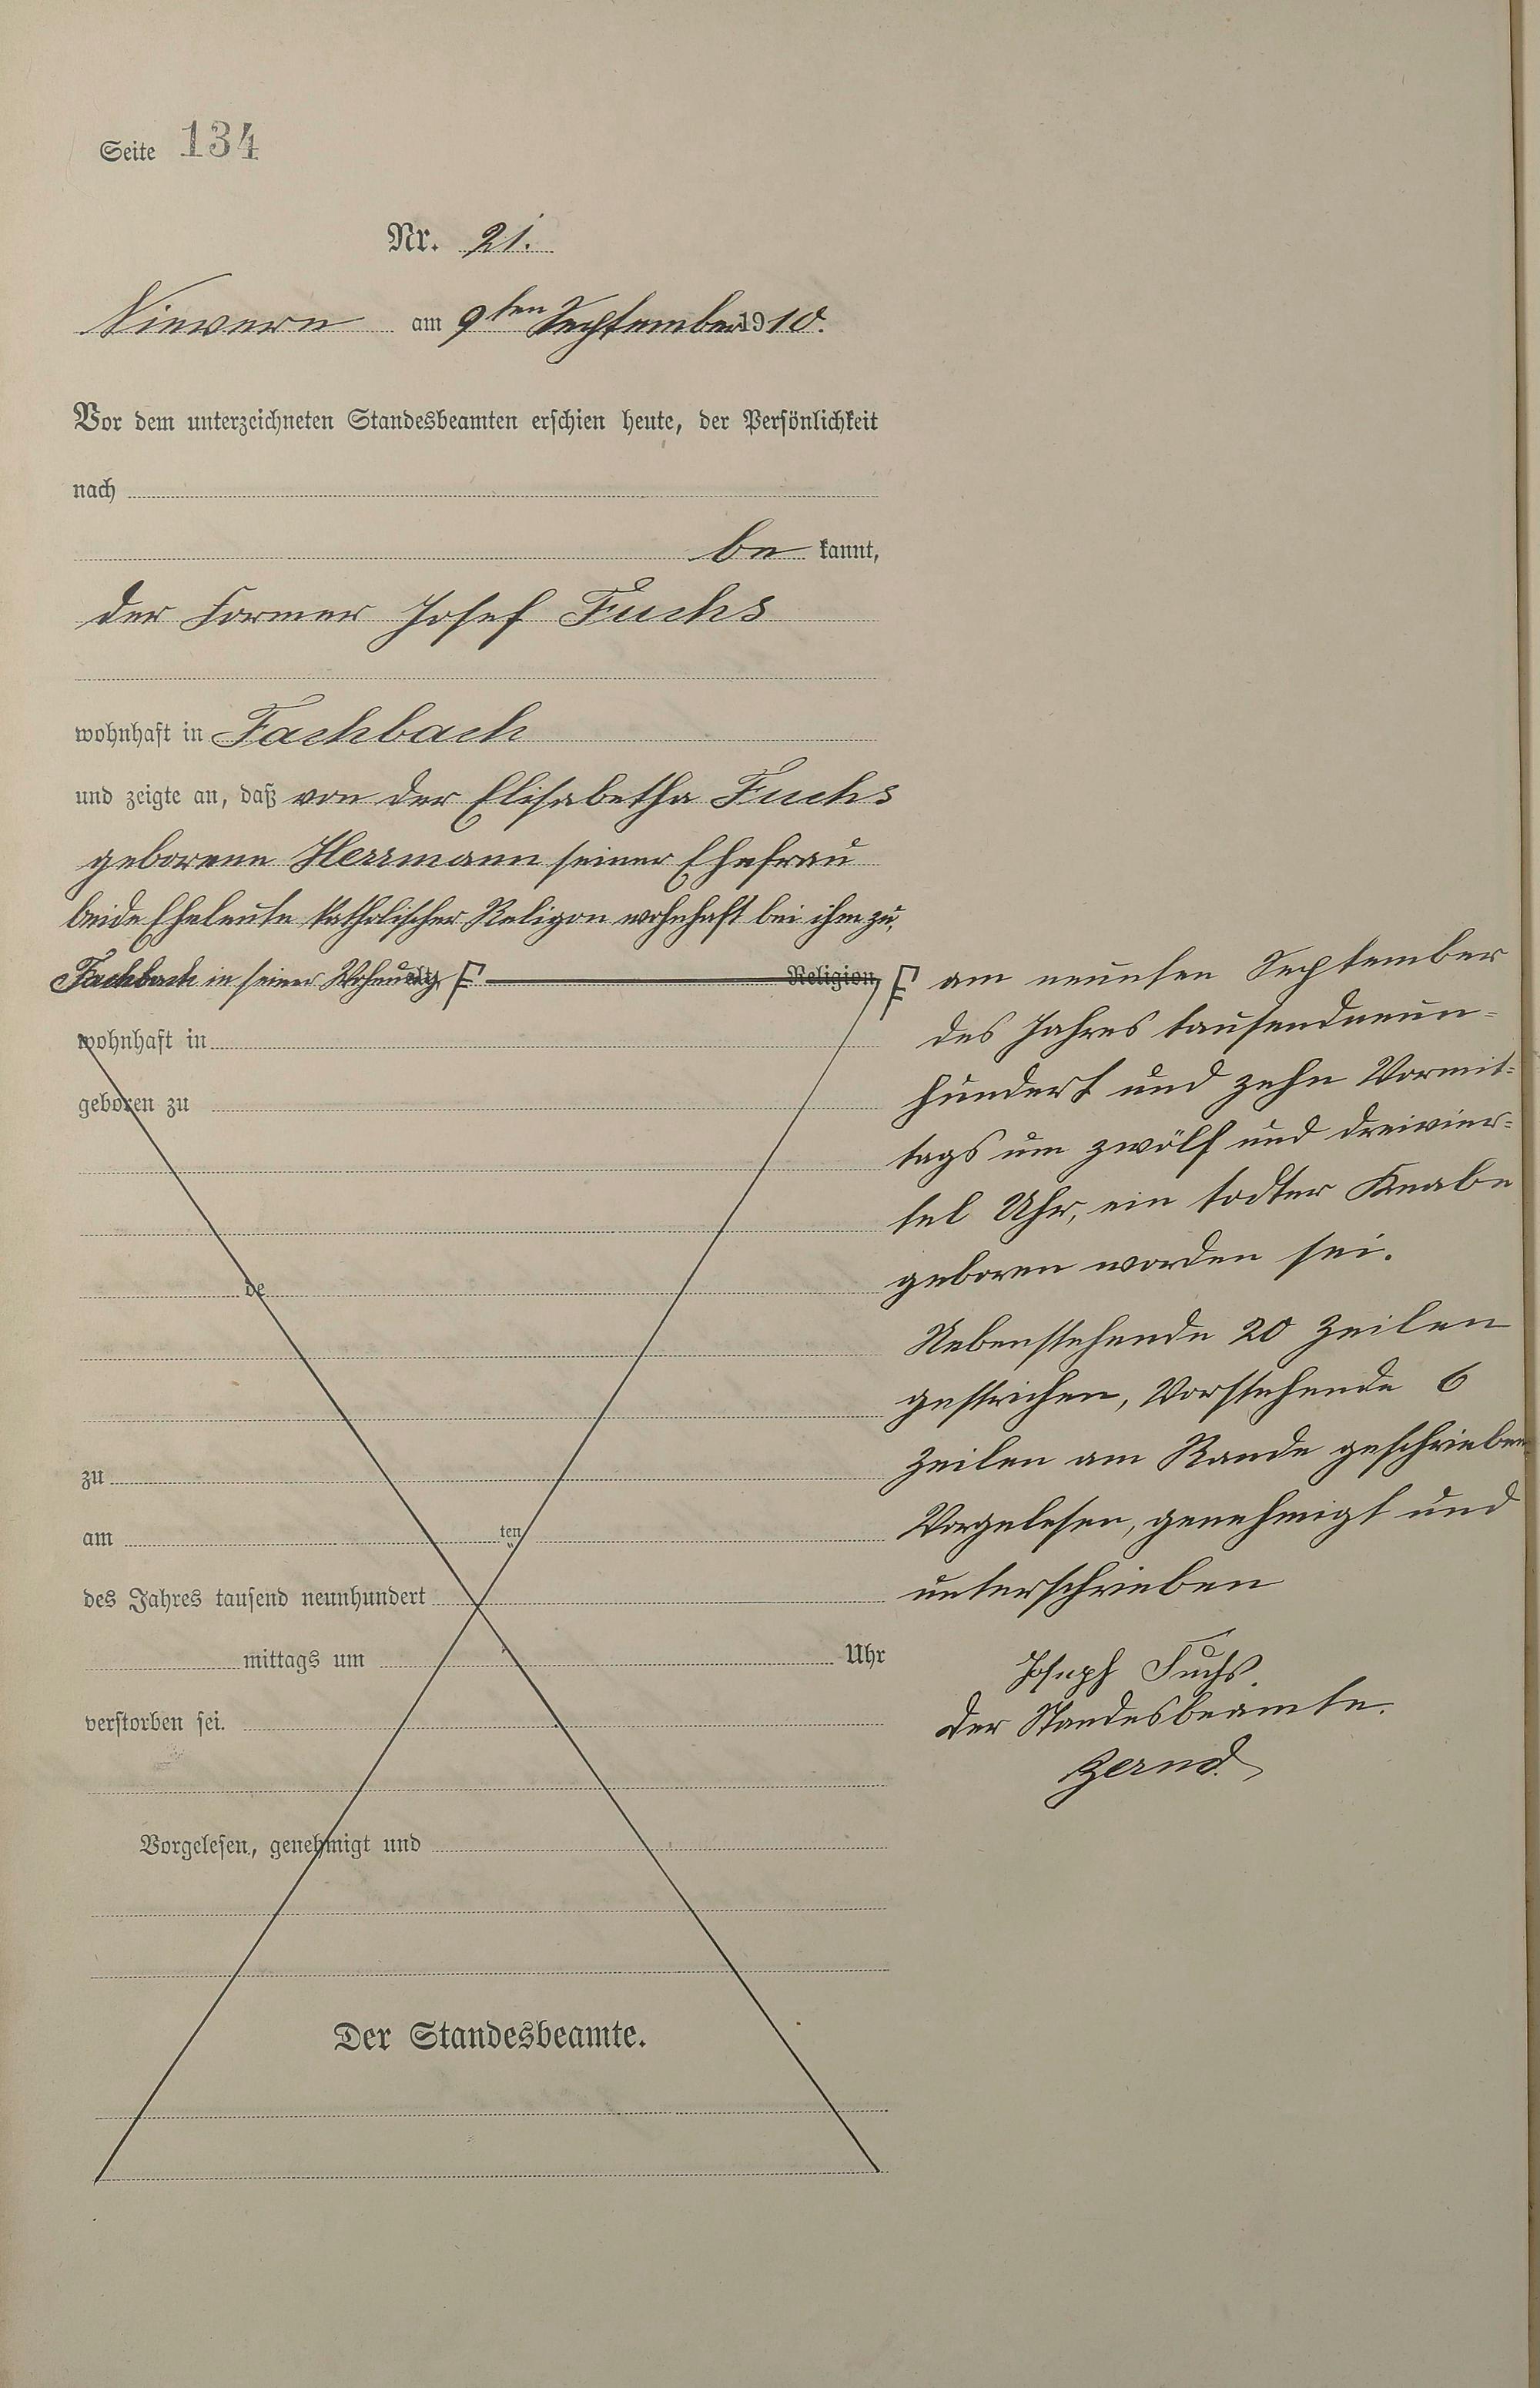 Seite 134
Nr. 21.
Nievern am 9ten September 1910.
Vor dem unterzeichneten Standesbeamten erschien heute, der Persönlichkeit
nach
be kannt,
der Former Josef Fuchs
wohnhaft in Fachbach
und zeigte an, daß von der Elisabetha Fuchs
geborene Herrmann seiner Ehefrau
beide Eheleute katholischer Religion wohnhaft bei ihm zu,
Fachbach in seiner Wohnung Religion,
wohnhaft in
geboren zu
de
zu
am ten
des Jahres tausend neunhundert
mittags um Uhr
verstorben sei.
Vorgelesen, genehmigt und
Der Standesbeamte.
am neunten September
des Jahres tausendneun-
hundert und zehn Vormit-
tags um zwölf und dreivier-
tel Uhr, ein todter Knabe
geboren worden sei.
Nebenstehende 20 Zeilen
gestrichen, Vorstehende 6
Zeilen am Rande geschrieben
Vorgelesen, genehmigt und
unterschrieben
Joseph Fuchs.
Der Standesbeamte.
Zernd.